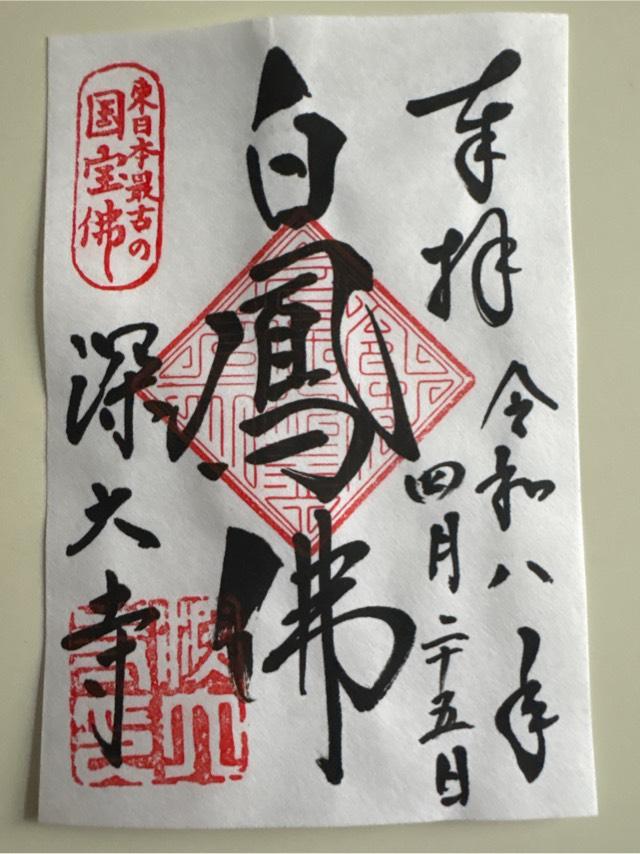 奉拝
令和八年
四月二十五日
白鳳佛
東日本最古の
国宝佛
深大寺